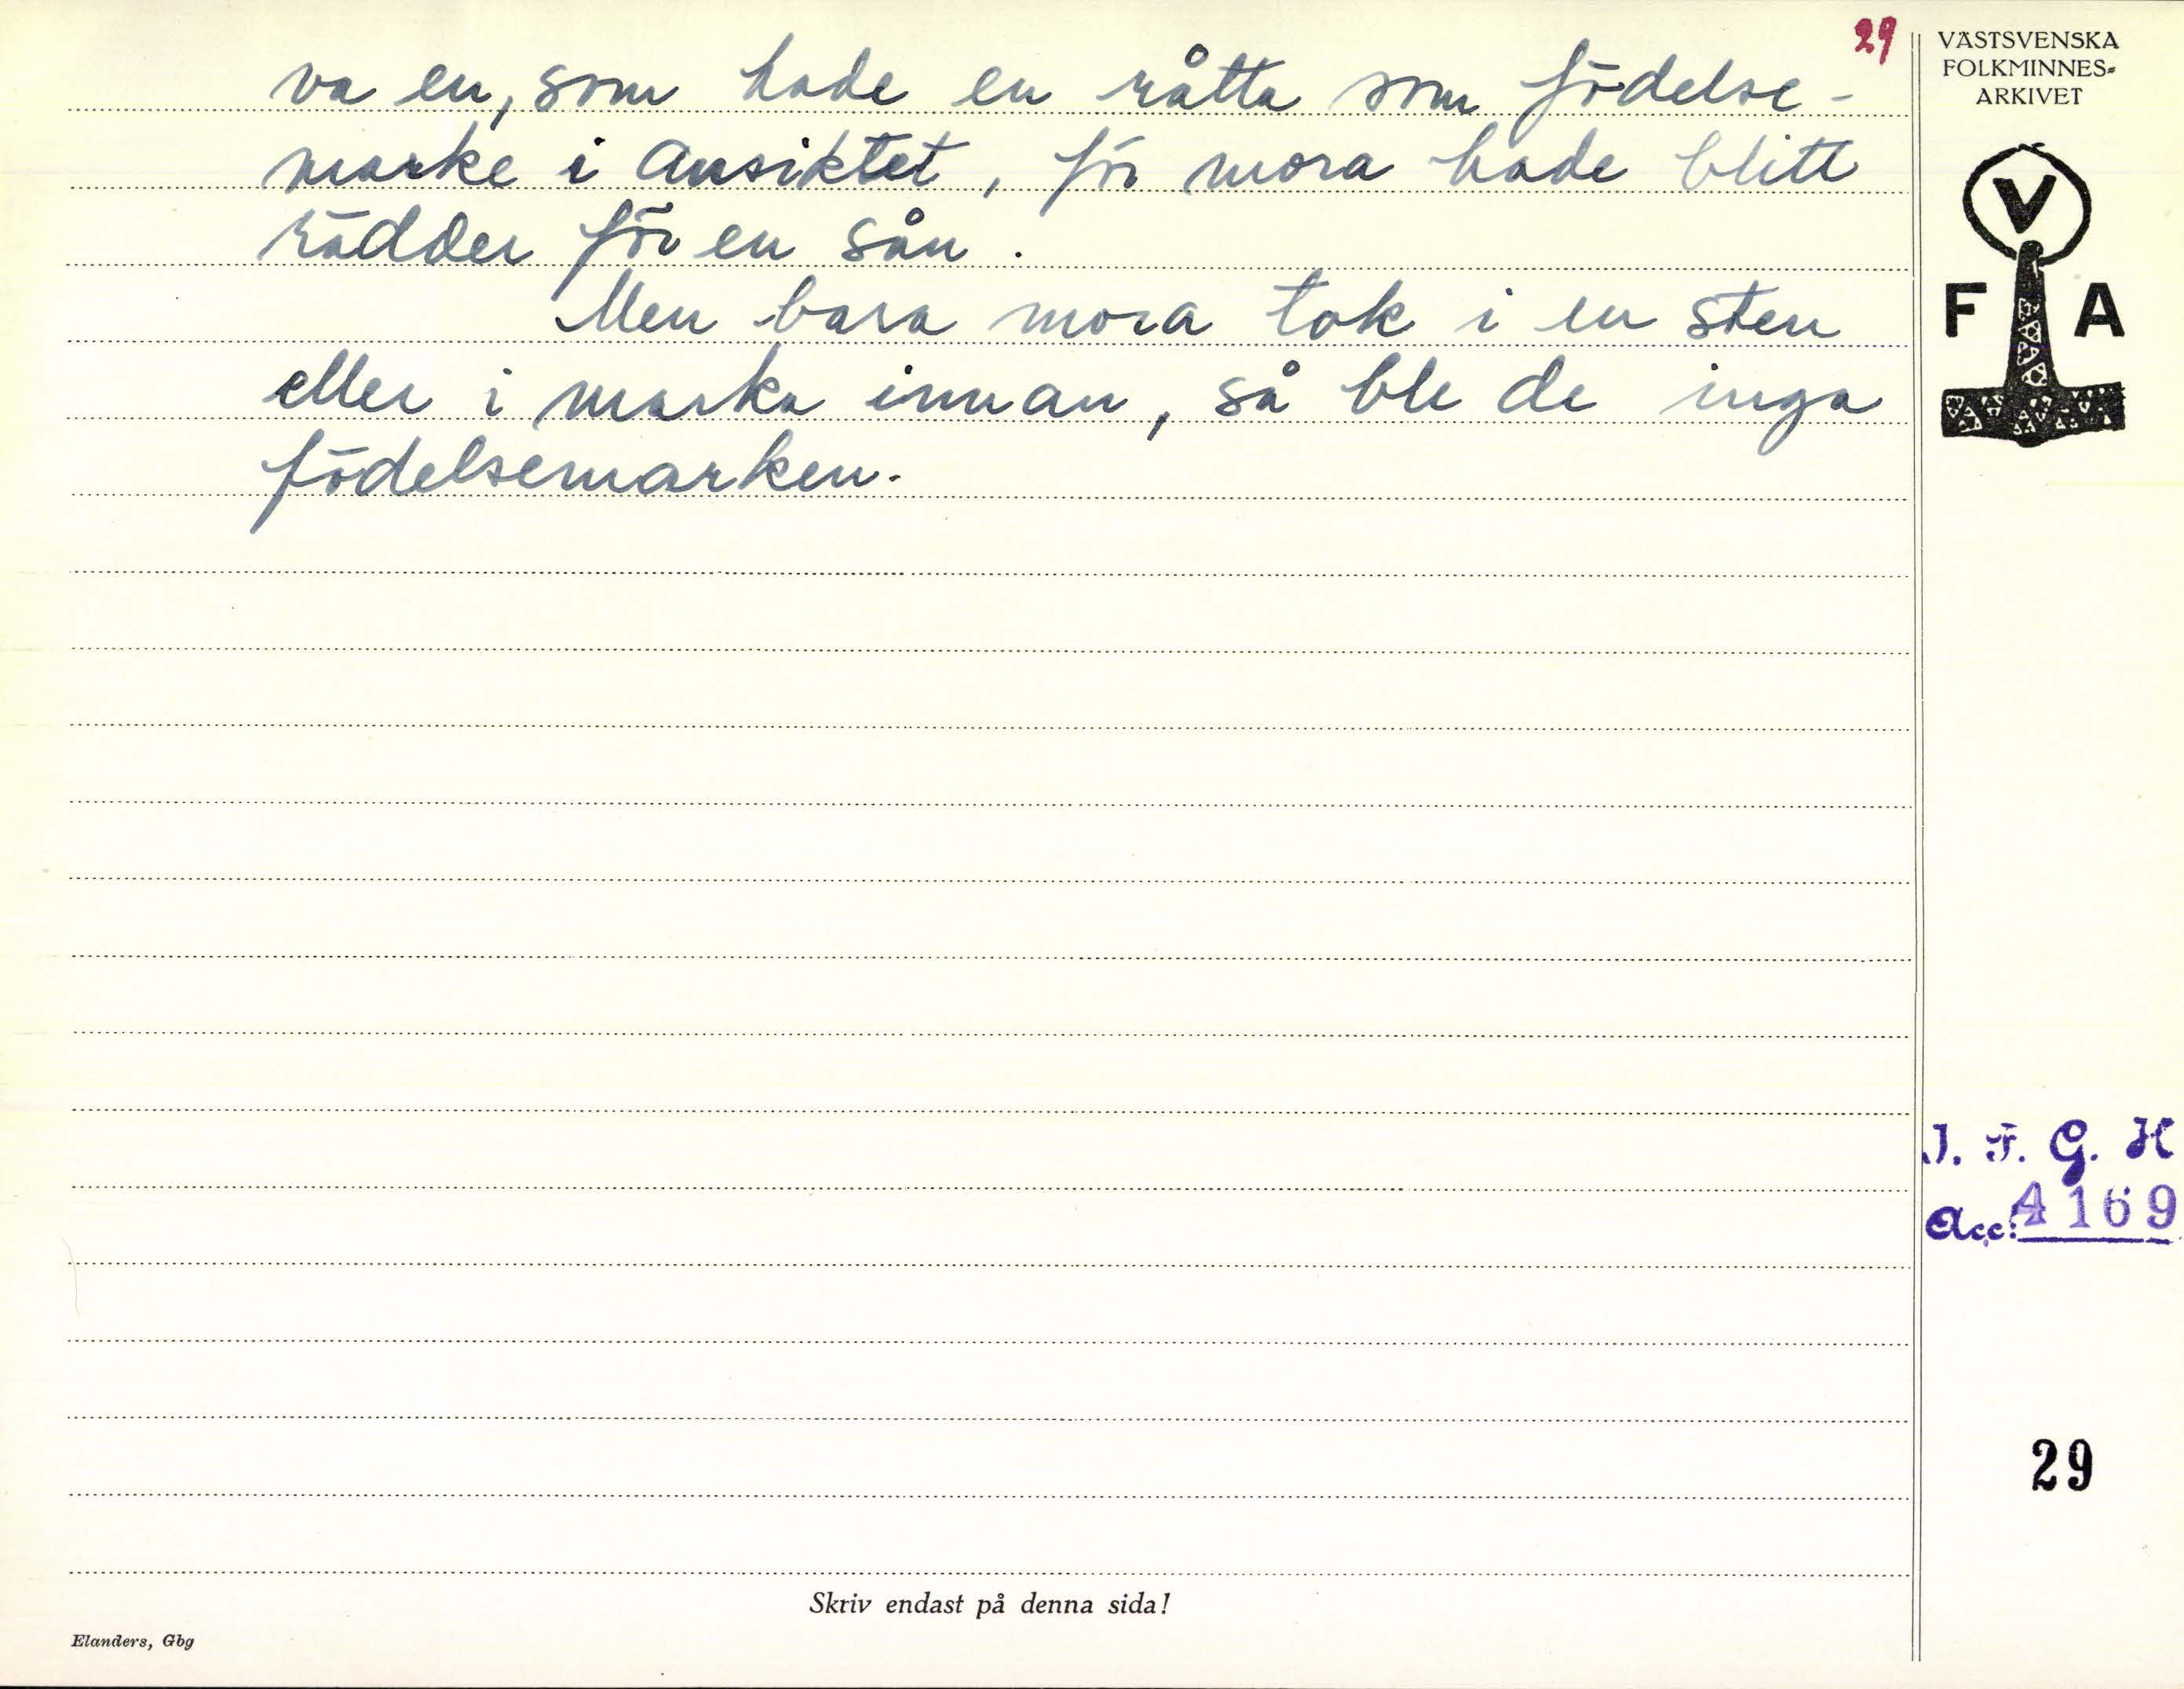 29
va en, som hade en råtta som födelse-
marke i ansiktet, för mora hade blitt
rädder för en sån.
Men bara mora tok i en sten
eller i marka innan, så ble de inga
födelsemarken.
VÄSTSVENSKA
FOLKMINNES-
ARKIVET
V
F A
I. F. G. H
Acc: 4169
29
Skriv endast på denna sida!
Elanders, Gbg